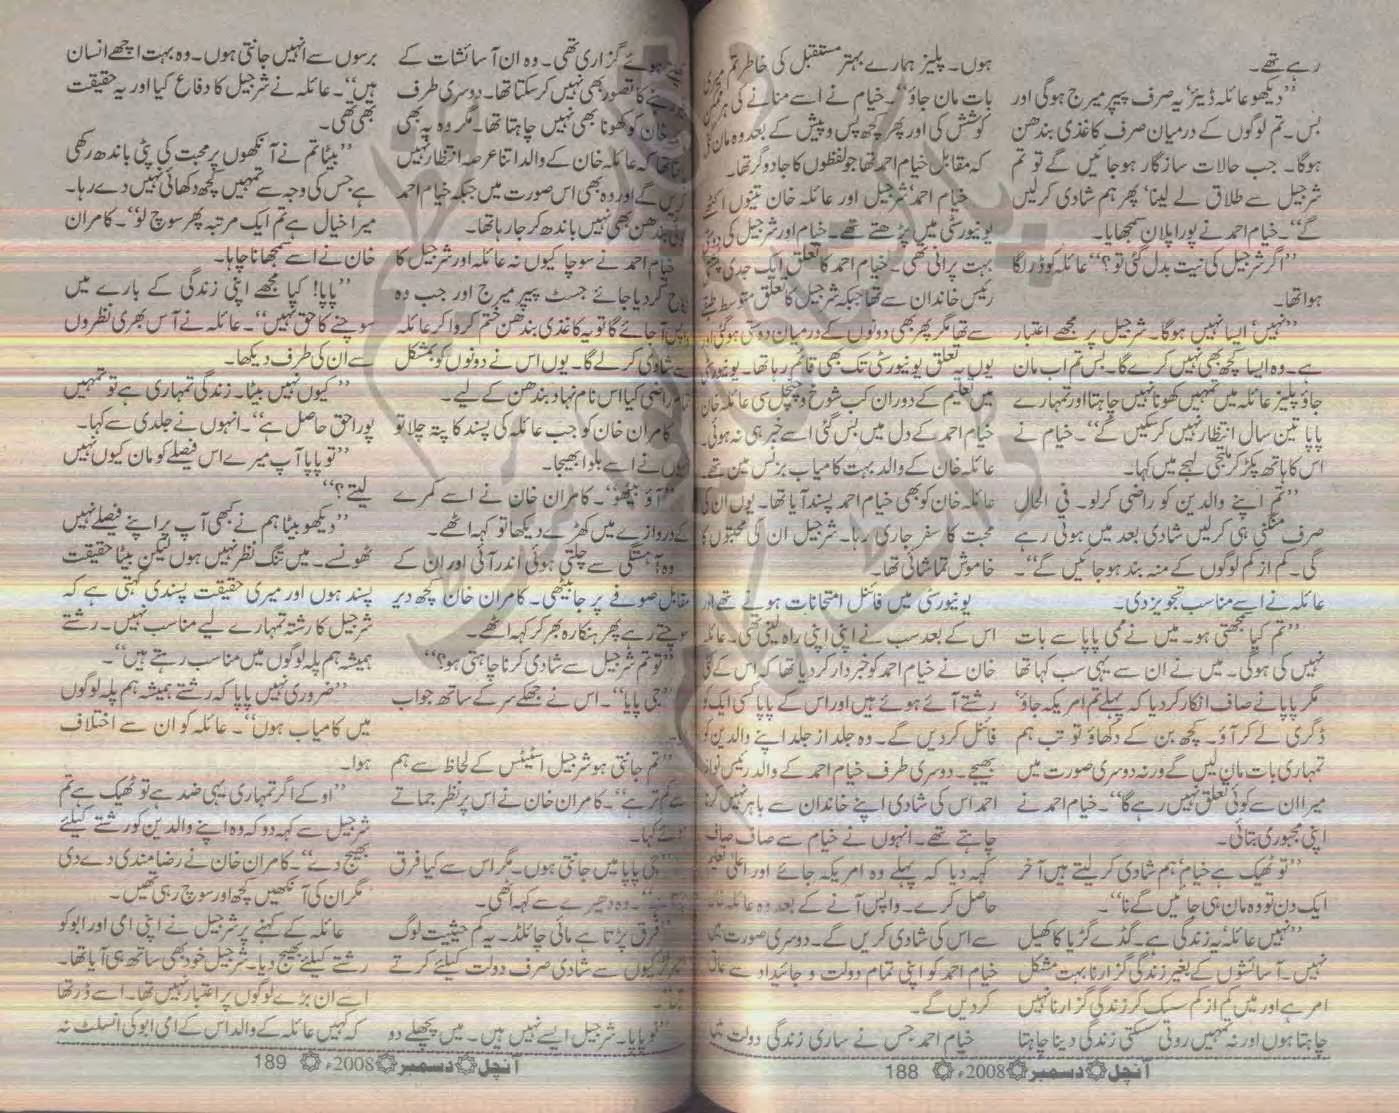 رہے تھے۔
”دیکھو عائلہ ڈیئر‘ یہ صرف پیپر میرج ہوگی اور
بس۔ تم لوگوں کے درمیان صرف کاغذی بندھن
ہوگا۔ جب حالات سازگار ہوجائیں گے تو تم
شرجیل سے طلاق لے لینا‘ پھر ہم شادی کرلیں
گے“۔ خیام احمد نے پورا پلان سمجھایا۔
”اگر شرجیل کی نیت بدل گئی تو؟“ عائلہ کو ڈر لگا
ہوا تھا۔
”نہیں‘ ایسا نہیں ہوگا۔ شرجیل پر مجھے اعتبار
ہے۔ وہ ایسا کچھ بھی نہیں کرے گا۔ بس تم اب مان
جاؤ پلیز عائلہ میں تمہیں کھونا نہیں چاہتا اور تمہارے
پاپا تین سال انتظار نہیں کرسکیں گے“۔ خیام نے
اس کا ہاتھ پکڑ کر ملتجی لہجے میں کہا۔
”تم اپنے والدین کو راضی کرلو۔ فی الحال
صرف منگنی ہی کرلیں شادی بعد میں ہوتی رہے
گی۔ کم از کم لوگوں کے منہ بند ہوجائیں گے“۔
عائلہ نے اسے مناسب تجویز دی۔
”تم کیا سمجھتی ہو۔ میں نے ممی پاپا سے بات
نہیں کی ہوگی۔ میں نے ان سے یہی سب کہا تھا
مگر پاپا نے صاف انکار کردیا کہ پہلے تم امریکہ جاؤ‘
ڈگری لے کر آؤ۔ کچھ بن کے دکھاؤ تو تب ہم
تمہاری بات مان لیں گے ورنہ دوسری صورت میں
میرا ان سے کوئی تعلق نہیں رہے گا“۔ خیام احمد نے
اپنی مجبوری بتائی۔
”تو ٹھیک ہے خیام‘ ہم شادی کرلیتے ہیں آخر
ایک دن تو وہ مان ہی جائیں گے نا“۔
”نہیں عائلہ‘ یہ زندگی ہے۔ گڈے گڑیا کا کھیل
نہیں۔ آسائشوں کے بغیر زندگی گزارنا بہت مشکل
امر ہے اور میں کم از کم سسک کر زندگی گزارنا نہیں
چاہتا ہوں اور نہ تمہیں روتی سسکتی زندگی دینا چاہتا
ہوں۔ پلیز ہمارے بہتر مستقبل کی خاطر تم میری
بات مان جاؤ“۔ خیام نے اسے منانے کی ہر ممکن
کوشش کی اور پھر کچھ پس و پیش کے بعد وہ مان گئی
کہ مقابل خیام احمد تھا جو لفظوں کا جادوگر تھا۔
خیام احمد‘ شرجیل اور عائلہ خان تینوں اکٹھے
یونیورسٹی میں پڑھتے تھے۔ خیام اور شرجیل کی دوستی
بہت پرانی تھی۔ خیام احمد کا تعلق ایک جدی پشتی
رئیس خاندان سے تھا جبکہ شرجیل کا تعلق متوسط طبقے
سے تھا مگر پھر بھی دونوں کے درمیان دوستی ہوگئی اور
یوں یہ تعلق یونیورسٹی تک بھی قائم رہا تھا۔ یونیورسٹی
میں تعلیم کے دوران کب شوخ و چنچل سی عائلہ خان
خیام احمد کے دل میں بس گئی اسے خبر ہی نہ ہوئی۔
عائلہ خان کے والد بہت کامیاب بزنس مین تھے۔
عائلہ خان کو بھی خیام احمد پسند آیا تھا۔ یوں ان کی
محبت کا سفر جاری رہا۔ شرجیل ان کی محبتوں کا
خاموش تماشائی تھا۔
یونیورسٹی میں فائنل امتحانات ہونے تھے اور
اس کے بعد سب نے اپنی اپنی راہ لینی تھی۔ عائلہ
خان نے خیام احمد کو خبردار کردیا تھا کہ اس کے کئی
رشتے آئے ہوئے ہیں اور اس کے پاپا کسی ایک کو
فائنل کردیں گے۔ وہ جلد از جلد اپنے والدین کو
بھیجے۔ دوسری طرف خیام احمد کے والد رئیس نواز
احمد اس کی شادی اپنے خاندان سے باہر نہیں کرنا
چاہتے تھے۔ انہوں نے خیام سے صاف صاف
کہہ دیا کہ پہلے وہ امریکہ جائے اور اعلیٰ تعلیم
حاصل کرے۔ واپس آنے کے بعد وہ عائلہ خان
سے اس کی شادی کریں گے۔ دوسری صورت میں
خیام احمد کو اپنی تمام دولت و جائیداد سے عاق
کردیں گے۔
خیام احمد جس نے ساری زندگی دولت میں
آنچل دسمبر ۲۰۰۸ء 188
ہوئے گزاری تھی۔ وہ ان آسائشات کے
کا تصور بھی نہیں کرسکتا تھا۔ دوسری طرف
خان کو کھونا بھی نہیں چاہتا تھا۔ مگر وہ یہ بھی
تھا کہ عائلہ خان کے والد اتنا عرصہ انتظار نہیں
کریں گے اور وہ بھی اس صورت میں جبکہ خیام احمد
بندھن بھی نہیں باندھ کر جارہا تھا۔
خیام احمد نے سوچا کیوں نہ عائلہ اور شرجیل کا
نکاح کردیا جائے جسٹ پیپر میرج اور جب وہ
واپس آجائے گا تو یہ کاغذی بندھن ختم کروا کر عائلہ
سے شادی کرلے گا۔ یوں اس نے دونوں کو بمشکل
راضی کیا اس نام نہاد بندھن کے لیے۔
کامران خان کو جب عائلہ کی پسند کا پتہ چلا تو
انہوں نے اسے بلوا بھیجا۔
”آؤ بیٹھو“۔ کامران خان نے اسے کمرے
کے دروازے میں کھڑے دیکھا تو کہہ اٹھے۔
وہ آہستگی سے چلتی ہوئی اندر آئی اور ان کے
مقابل صوفے پر جا بیٹھی۔ کامران خان کچھ دیر
سوچتے رہے پھر ہنکارہ بھر کر کہہ اٹھے۔
”تو تم شرجیل سے شادی کرنا چاہتی ہو؟“
”جی پاپا“۔ اس نے جھکے سر کے ساتھ جواب
”تم جانتی ہو شرجیل اسٹیٹس کے لحاظ سے ہم
سے کم تر ہے“۔ کامران خان نے اس پر نظر جماتے
ہوئے کہا۔
”جی پاپا میں جانتی ہوں۔ مگر اس سے کیا فرق
وہ دھیرے سے کہہ اٹھی۔
”فرق پڑتا ہے مائی چائلڈ۔ یہ کم حیثیت لوگ
سے شادی صرف دولت کیلئے کرتے
”نو پاپا۔ شرجیل ایسے نہیں ہیں۔ میں پچھلے دو
برسوں سے انہیں جانتی ہوں۔ وہ بہت اچھے انسان
ہیں“۔ عائلہ نے شرجیل کا دفاع کیا اور یہ حقیقت
بھی تھی۔
”بیٹا تم نے آنکھوں پر محبت کی پٹی باندھ رکھی
ہے جس کی وجہ سے تمہیں کچھ دکھائی نہیں دے رہا۔
میرا خیال ہے تم ایک مرتبہ پھر سوچ لو“۔ کامران
خان نے اسے سمجھانا چاہا۔
”پاپا! کیا مجھے اپنی زندگی کے بارے میں
سوچنے کا حق نہیں“۔ عائلہ نے آس بھری نظروں
سے ان کی طرف دیکھا۔
”کیوں نہیں بیٹا۔ زندگی تمہاری ہے تو تمہیں
پورا حق حاصل ہے“۔ انہوں نے جلدی سے کہا۔
”تو پاپا آپ میرے اس فیصلے کو مان کیوں نہیں
لیتے؟“
”دیکھو بیٹا ہم نے کبھی آپ پر اپنے فیصلے نہیں
ٹھونسے۔ میں تنگ نظر نہیں ہوں لیکن بیٹا حقیقت
پسند ہوں اور میری حقیقت پسندی کہتی ہے کہ
شرجیل کا رشتہ تمہارے لیے مناسب نہیں۔ رشتے
ہمیشہ ہم پلہ لوگوں میں مناسب رہتے ہیں“۔
”ضروری نہیں پاپا کہ رشتے ہمیشہ ہم پلہ لوگوں
میں کامیاب ہوں“۔ عائلہ کو ان سے اختلاف
ہوا۔
”اوکے اگر تمہاری یہی ضد ہے تو ٹھیک ہے تم
شرجیل سے کہہ دو کہ وہ اپنے والدین کو رشتے کیلئے
بھیج دے“۔ کامران خان نے رضامندی دے دی
مگر ان کی آنکھیں کچھ اور سوچ رہی تھیں۔
عائلہ کے کہنے پر شرجیل نے اپنی امی اور ابو کو
رشتے کیلئے بھیج دیا۔ شرجیل خود بھی ساتھ ہی آیا تھا۔
اسے ان بڑے لوگوں پر اعتبار نہیں تھا۔ اسے ڈر تھا
کہ کہیں عائلہ کے والد اس کے امی ابو کی انسلٹ نہ
آنچل دسمبر ۲۰۰۸ء 189